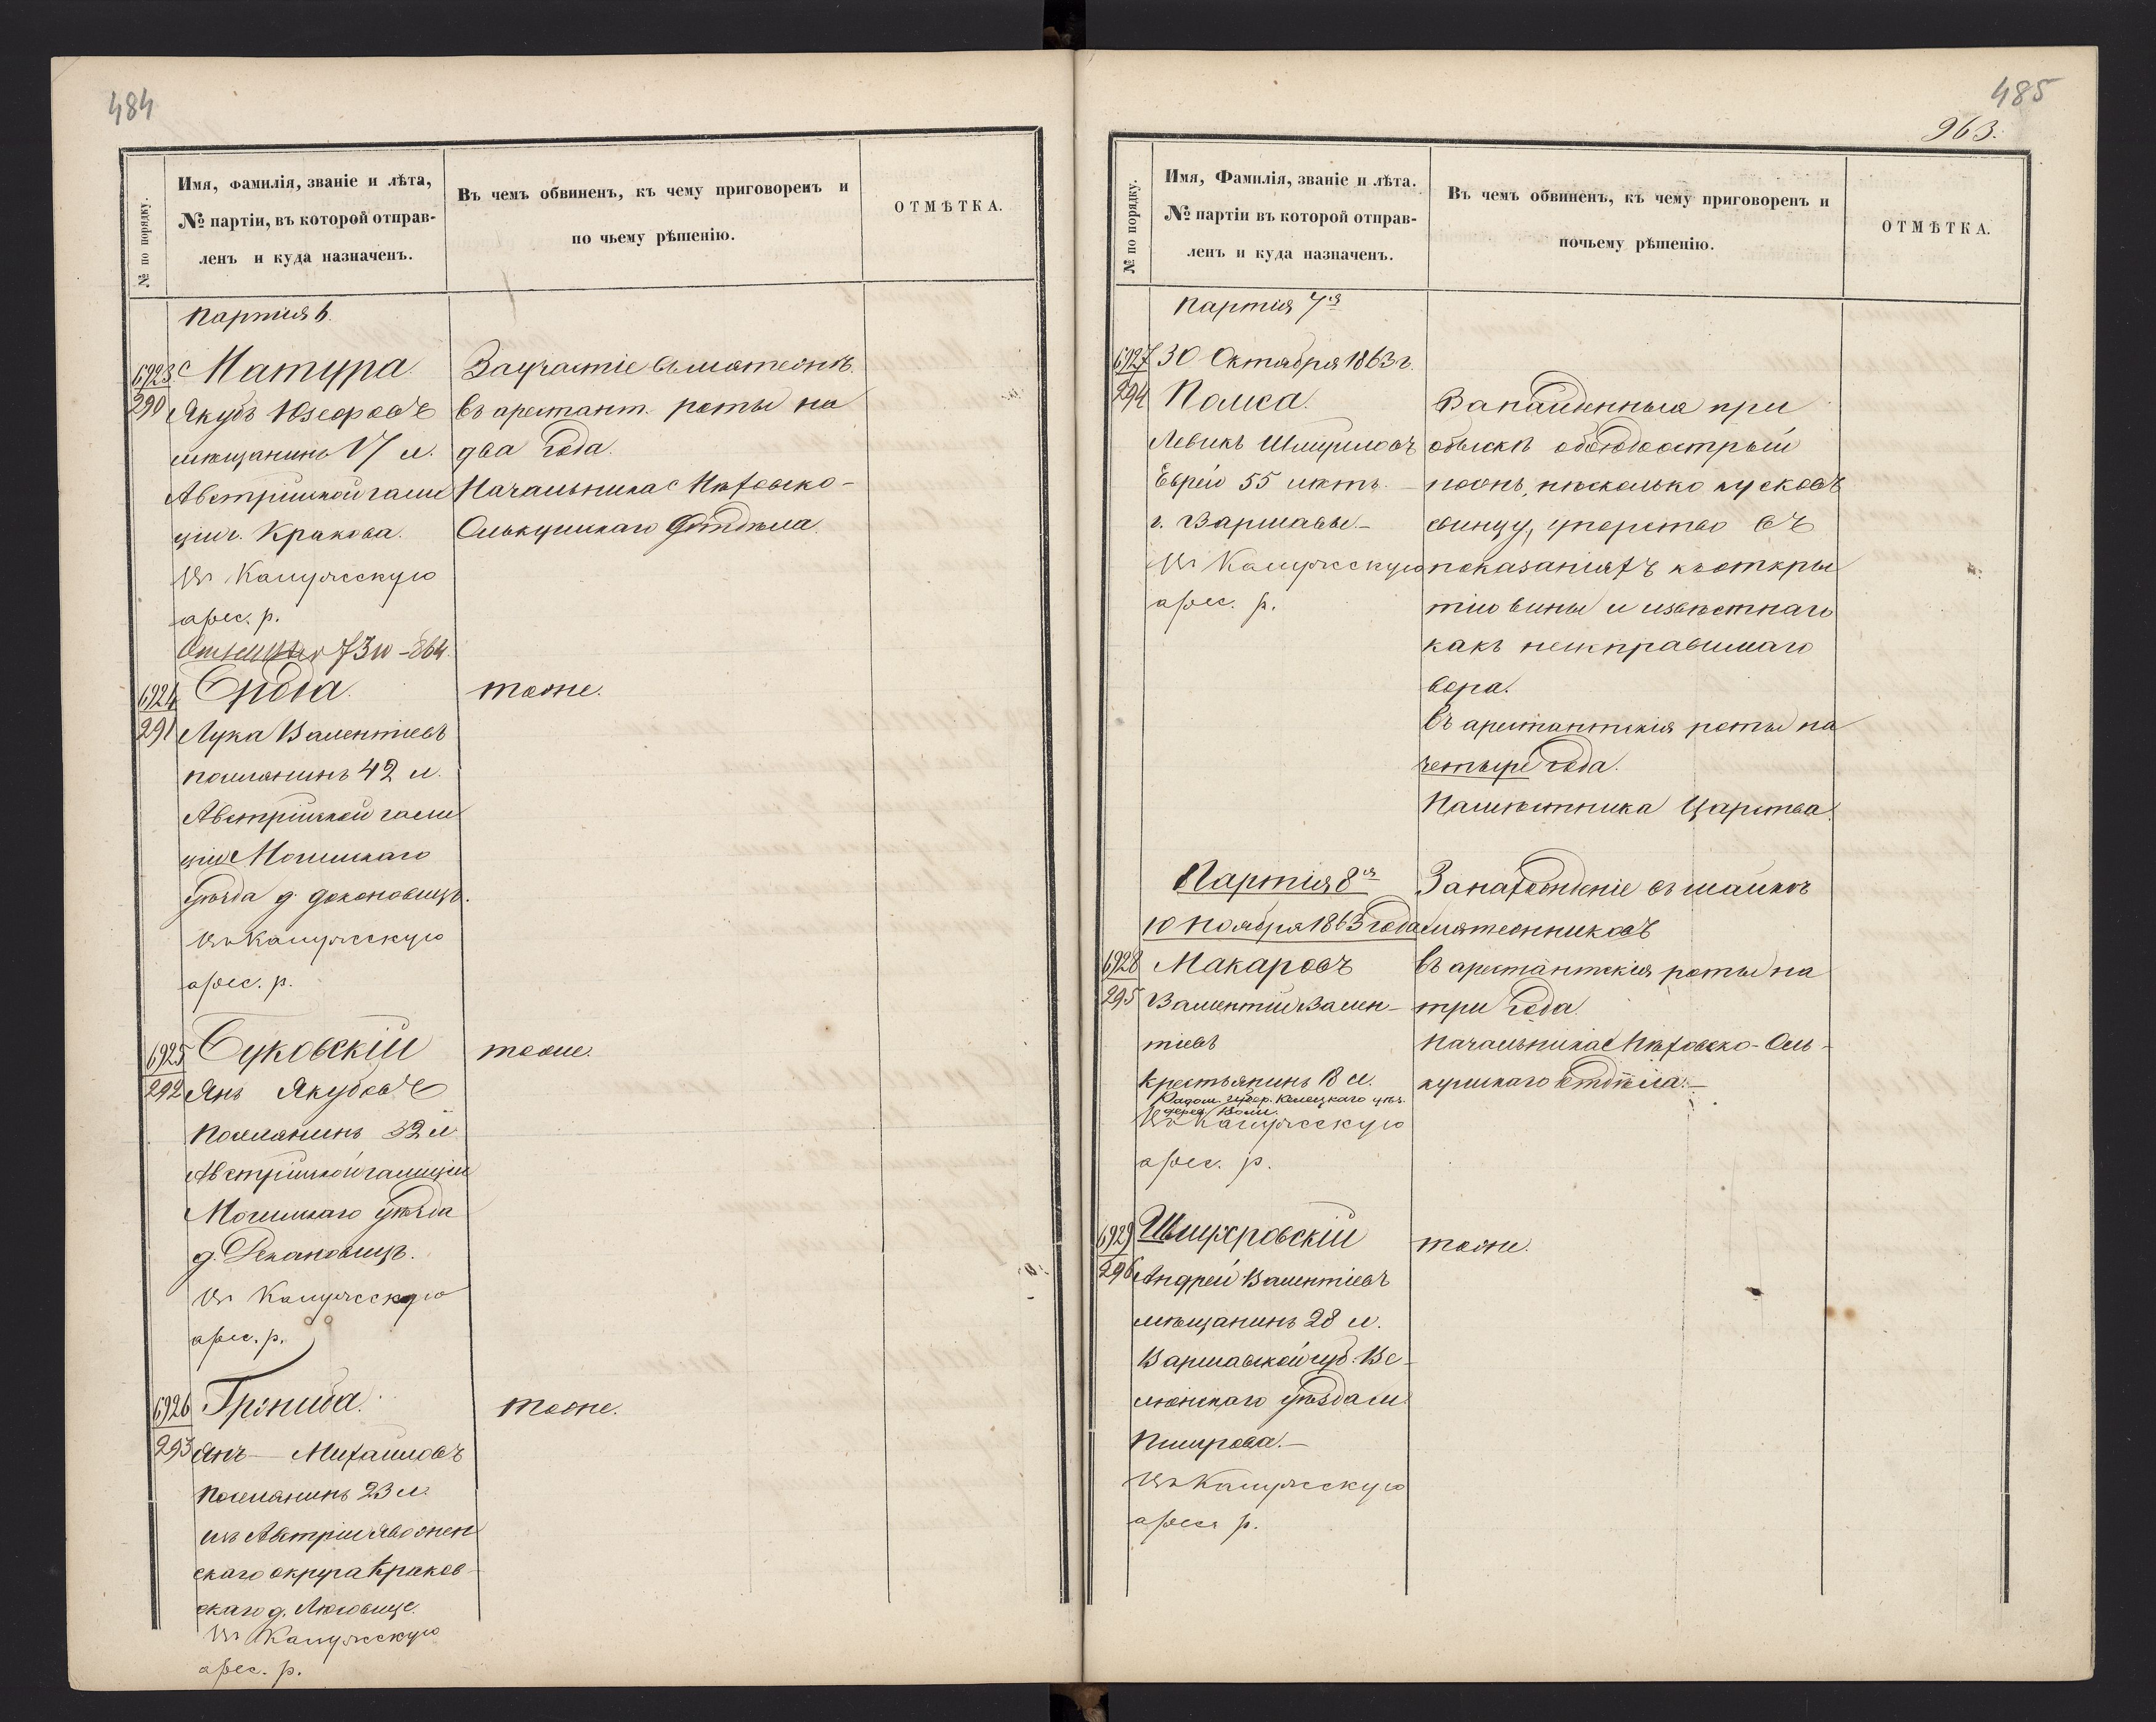 484
№ по порядку.
Имя, фамилія, званіе и лѣта,
№ партіи, въ которой отправ-
ленъ и куда назначенъ.
Въ чемъ обвиненъ, къ чему приговоренъ и
по чьему рѣшенію.
ОТМѢТКА.
Партия 6.
6923
290
Матура
Якубъ Юзефовъ
мѣщанинъ 17 л.
Австрійской гали
ціи г. Кракова.
Въ Калужскую
арес. р.
За участіе въ мятежѣ.
въ арестант. роты на
два года.
Начальника Мѣховско-
Олькушскаго Отдѣла.
6924
291
Лука Валентіевъ
поселянинъ 42 л.
Австрійской гали
ціи Могильскаго
уѣзда д.
Въ Калужскую
арес. р.
тоже.
6925
292
Суковскій
Янъ Якубовъ
Поселянинъ 32 л.
Австрійской галиціи
Могильскаго уѣзда
д.
Въ Калужскую
арес. р.
тоже.
6926
293
Янъ Михайловъ
Поселянинъ 23 л.
изъ Австріи Явожен
скаго округа Краков-
скаго д.
Въ Калужскую
арес. р.
тоже.
485
963.
№ по порядку.
Имя, Фамилія, званіе и лѣта.
№ партіи въ которой отправ-
ленъ и куда назначенъ.
Въ чемъ обвиненъ, къ чему приговоренъ и
почьему рѣшенію.
ОТМѢТКА.
Партия 7я
6927
294
30 Октября 1863 г.
Левикъ Шмуиловъ
Еврей 55 лѣтъ.
г. Варшавы
Въ Калужскую
арес. р.
За найденныя при
обыскѣ обоюдоострый
ножъ, нѣсколько кусковъ
свинцу, упорство въ
показаніяхъ къ откры
тію вины и извѣстнаго
какъ неисправимаго
вора.
Въ арестантскія роты на
четыре года.
Намѣстника Царства.
Партія 8я
10 Ноября 1863 года
6928
295
Макаровъ
Валентій Вален-
тіевъ
Крестьянинъ 18 л.
Радом. губер. Келецкаго уѣз.
дерев. Воли.
Въ Калужскую
арес. р.
За нахожденіе въ шайкѣ
мятежниковъ
въ арестантскія роты на
три года.
Начальника Мѣховско-Оль-
кушскаго отдѣла.
6929
296
Андрей Валентіевъ
мѣщанинъ 28 л.
Варшавской губ. Ве-
люнскаго уѣзда м.
Въ Калужскую
арес. р.
тоже.